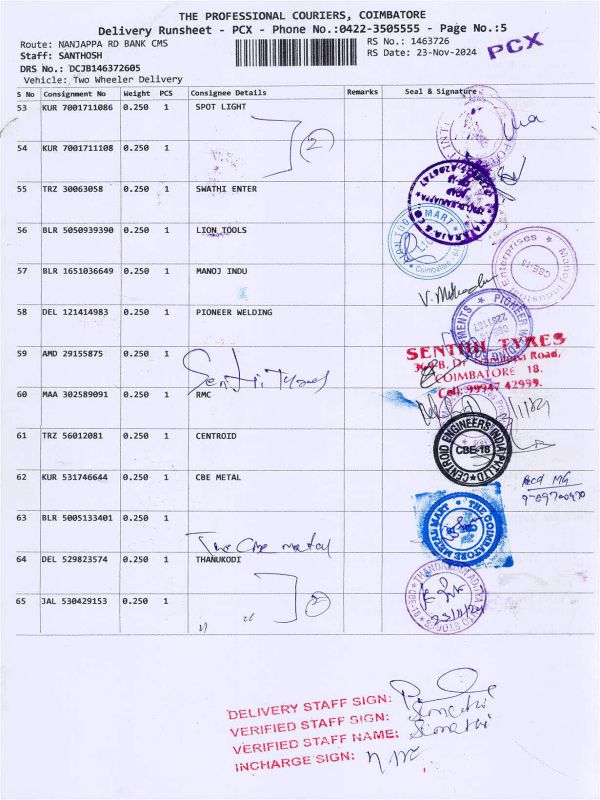 THE PROFESSIONAL COURIERS, COIMBATORE
Delivery Runsheet - PCX - Phone No.:0422-3505555 - Page No.:5
Route: NANJAPPA RD BANK CMS RS No.: 1463726
Staff: SANTHOSH RS Date: 23-Nov-2024
PCX
DRS No.: DCJB146372605
Vehicle: Two Wheeler Delivery
S No Consignment No Weight PCS Consignee Details Remarks Seal & Signature
53 KUR 7001711086 0.250 1 SPOT LIGHT
2
54 KUR 7001711108 0.250 1
55 TRZ 30063058 0.250 1 SWATHI ENTER
56 BLR 5050939390 0.250 1 LION TOOLS
57 BLR 1651036649 0.250 1 MANOJ INDU
58 DEL 121414983 0.250 1 PIONEER WELDING
59 AMD 29155875 0.250 1
SENTHIL TYRES
Road,
COIMBATORE 18.
Cell: 99947 42999.
60 MAA 302589091 0.250 1 RMC
61 TRZ 56012081 0.250 1 CENTROID
CENTROID ENGINEERS INDIA PVT LTD
CBE-18
62 KUR 531746644 0.250 1 CBE METAL
63 BLR 5005133401 0.250 1
The CBE metal
THE COIMBATORE METAL MART
64 DEL 529823574 0.250 1 THANUKODI
2
65 JAL 530429153 0.250 1
DELIVERY STAFF SIGN:
VERIFIED STAFF SIGN:
VERIFIED STAFF NAME:
INCHARGE SIGN: